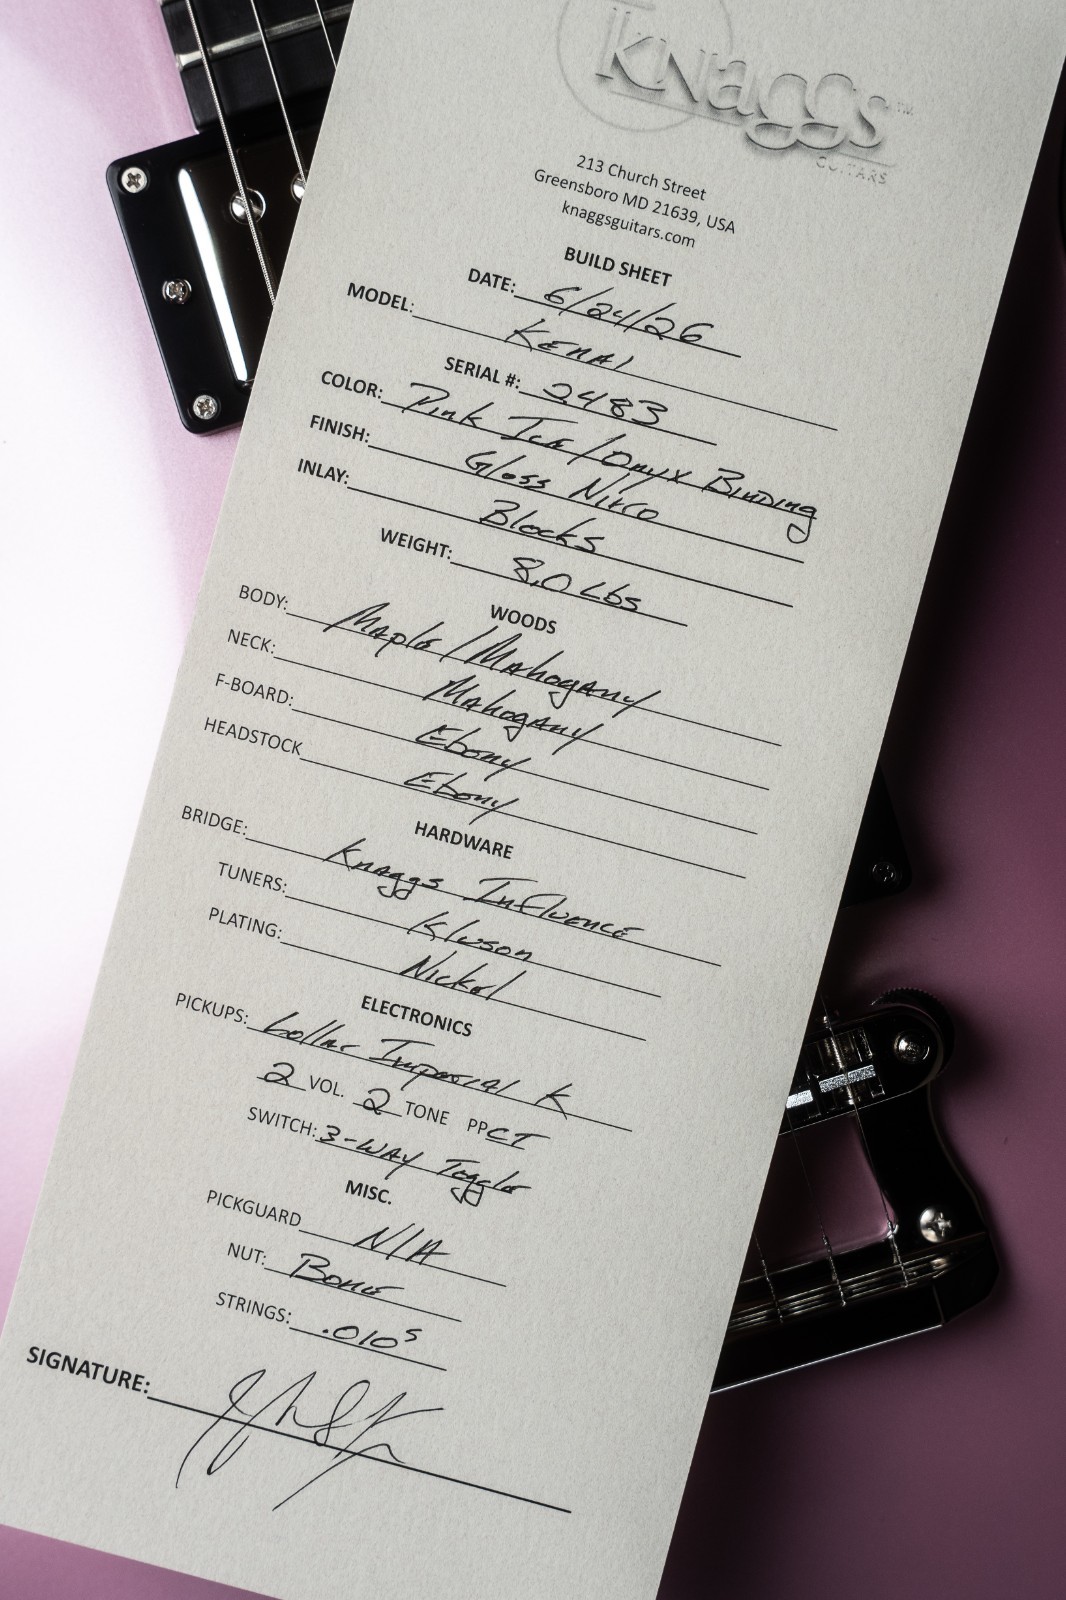 Knaggs™
GUITARS
213 Church Street
Greensboro MD 21639, USA
knaggsguitars.com
BUILD SHEET
DATE: 6/24/26
MODEL: Kenai
SERIAL #: 2483
COLOR: Pink Ice/Onyx Binding
FINISH: Gloss Nitro
INLAY: Blocks
WEIGHT: 8.0 Lbs
WOODS
BODY: Maple/Mahogany
NECK: Mahogany
F-BOARD: Ebony
HEADSTOCK Ebony
HARDWARE
BRIDGE: Knaggs Influence
TUNERS: Kluson
PLATING: Nickel
ELECTRONICS
PICKUPS: Lollar Imperial K
2 VOL. 2 TONE PP CT
SWITCH: 3-Way Toggle
MISC.
PICKGUARD N/A
NUT: Bone
STRINGS: .010s
SIGNATURE: